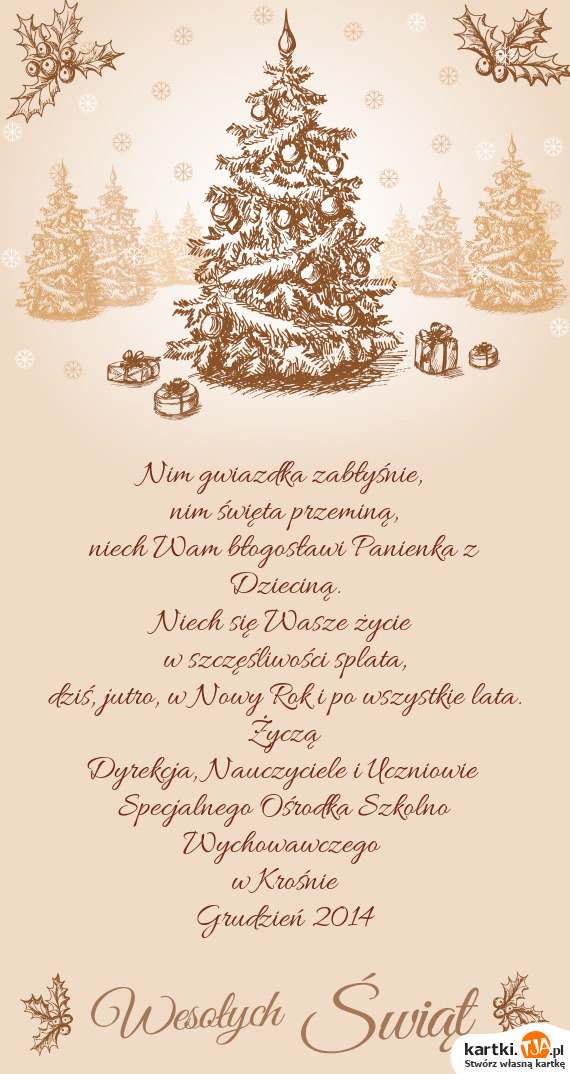 Nim gwiazdka zabłyśnie,
nim święta przeminą,
niech Wam błogosławi Panienka z
Dzieciną.
Niech się Wasze życie
w szczęśliwości splata,
dziś, jutro, w Nowy Rok i po wszystkie lata.
Życzą
Dyrekcja, Nauczyciele i Uczniowie
Specjalnego Ośrodka Szkolno
Wychowawczego
w Krośnie
Grudzień 2014
Wesołych Świąt
kartki.TJA.pl
Stwórz własną kartkę